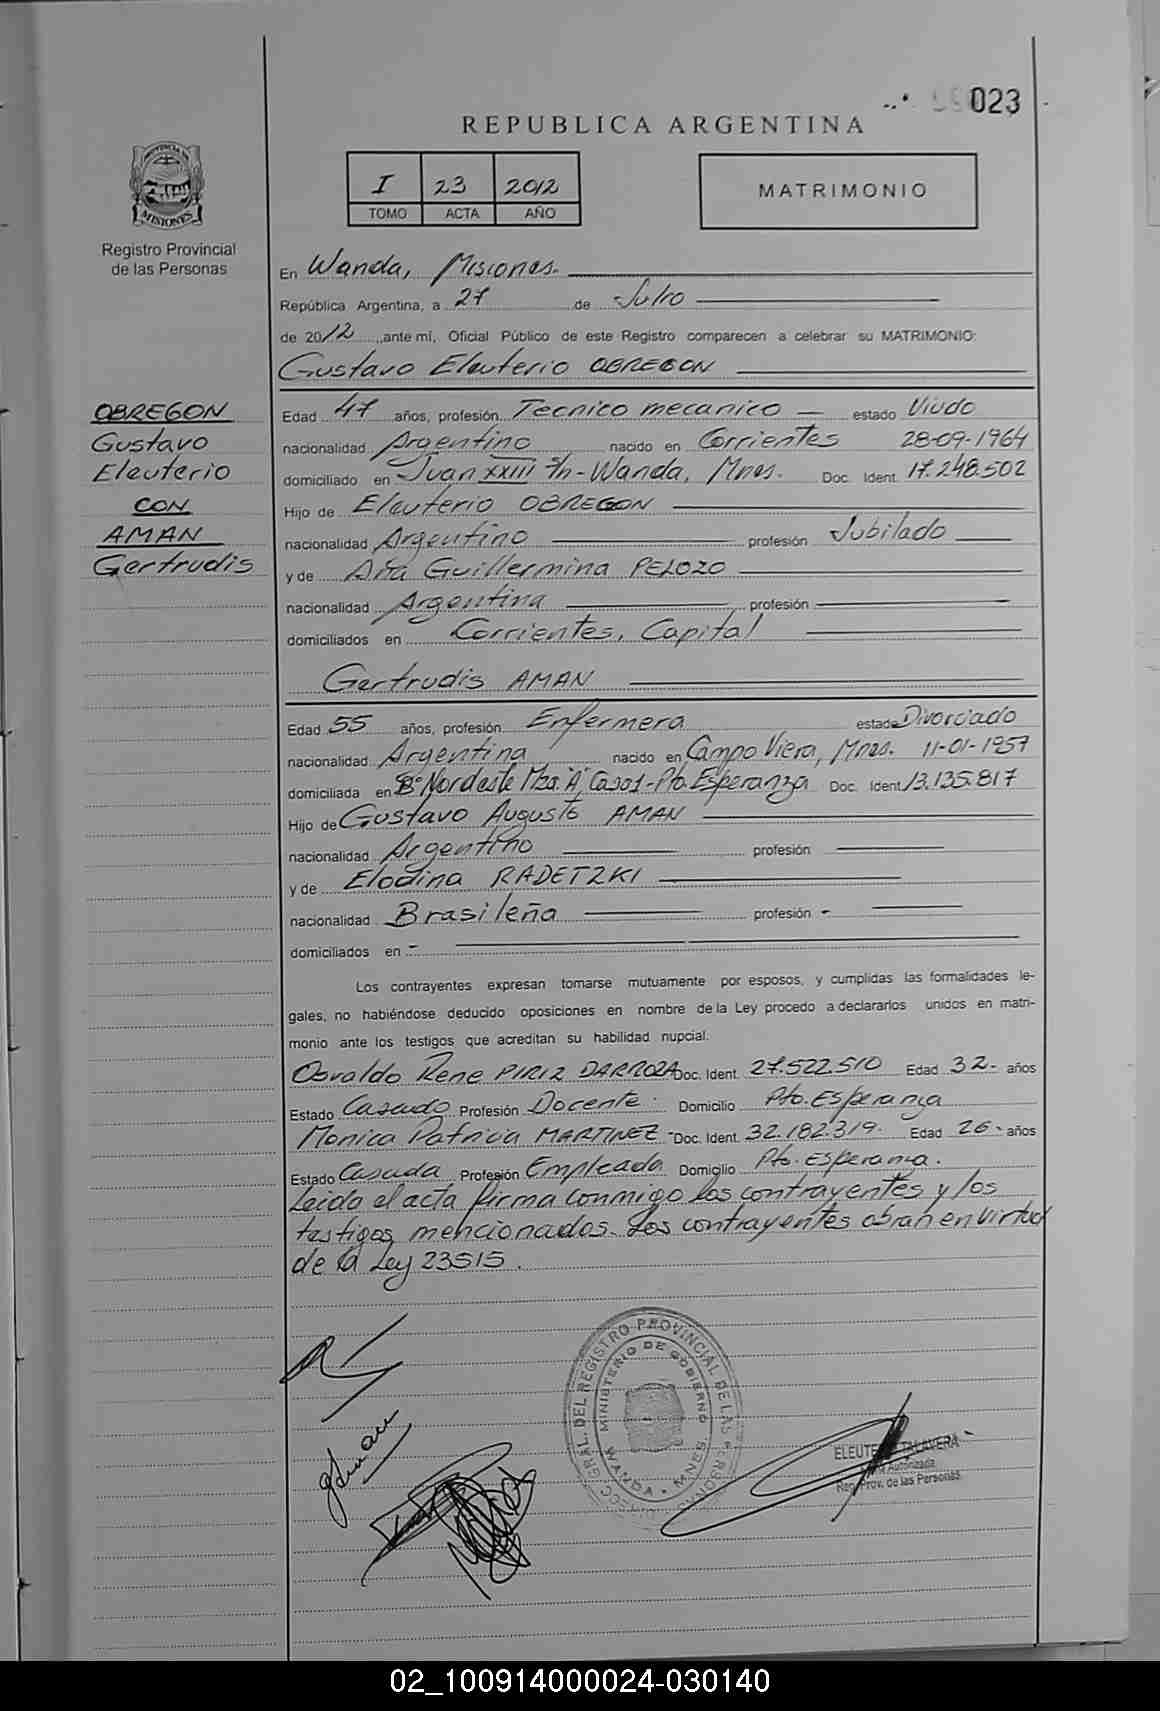 023
REPUBLICA ARGENTINA
I 23 2012
TOMO ACTA AÑO
MATRIMONIO
PROVINCIA DE
MISIONES
Registro Provincial
de las Personas
En Wanda, Misiones.
República Argentina, a 27 de Julio
de 2012, ante mí, Oficial Público de este Registro comparecen a celebrar su MATRIMONIO:
Gustavo Eleuterio OBREGON
OBREGON
Gustavo
Eleuterio
CON
AMAN
Gertrudis
Edad 47 años, profesión Tecnico mecanico estado Viudo
nacionalidad Argentino nacido en Corrientes 28-09-1964
domiciliado en Juan XXIII S/n - Wanda, Mnes. Doc. Ident. 17.248.502
Hijo de Eleuterio OBREGON
nacionalidad Argentino profesión Jubilado
y de Ana Guillermina PELOZO
nacionalidad Argentina profesión
domiciliados en Corrientes, Capital
Gertrudis AMAN
Edad 55 años, profesión Enfermera estado Divorciado
nacionalidad Argentina nacido en Campo Viera, Mnes. 11-01-1957
domiciliada en B° Nordeste Mza. "A", Casa 1 - Pto. Esperanza Doc. Ident. 13.135.817
Hijo de Gustavo Augusto AMAN
nacionalidad Argentino profesión
y de Elodina RADETZKI
nacionalidad Brasileña profesión -
domiciliados en -
Los contrayentes expresan tomarse mutuamente por esposos, y cumplidas las formalidades le-
gales, no habiéndose deducido oposiciones en nombre de la Ley procedo a declararlos unidos en matri-
monio ante los testigos que acreditan su habilidad nupcial.
Osvaldo Rene PIRIZ DARROZA Doc. Ident. 27.522.510 Edad 32- años
Estado Casado Profesión Docente. Domicilio Pto. Esperanza
Monica Patricia MARTINEZ - Doc. Ident. 32.182.319. Edad 26- años
Estado Casada Profesión Empleada Domicilio Pto. Esperanza.
Leido el acta firma conmigo los contrayentes y los
testigos mencionados. Los contrayentes obran en virtud
de la Ley 23515.
GRAL. DEL REGISTRO PROVINCIAL DE LAS PERSONAS
MINISTERIO DE GOBIERNO
WANDA - MNES.
gAman
TALAVERA
Autorizada
Reg. Prov. de las Personas
02_100914000024-030140